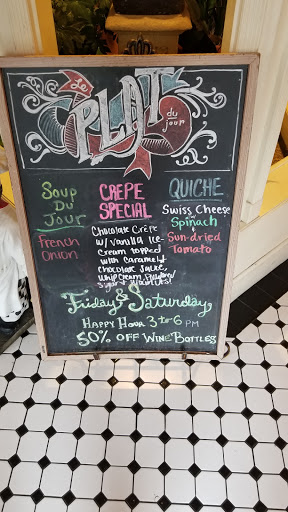 Le
PLAT
du
jour
Soup
Du
Jour
French
Onion
CREPE
SPECIAL
Chocolate Crêpe
w/ Vanilla Ice-
cream topped
with caramel &
chocolate sauce,
whip cream,
sugar & walnuts!
QUICHE
Swiss Cheese
Spinach
Sun-dried
Tomato
Friday & Saturday
Happy Hour 3 to 6 PM
50% OFF WINE BOTTLES